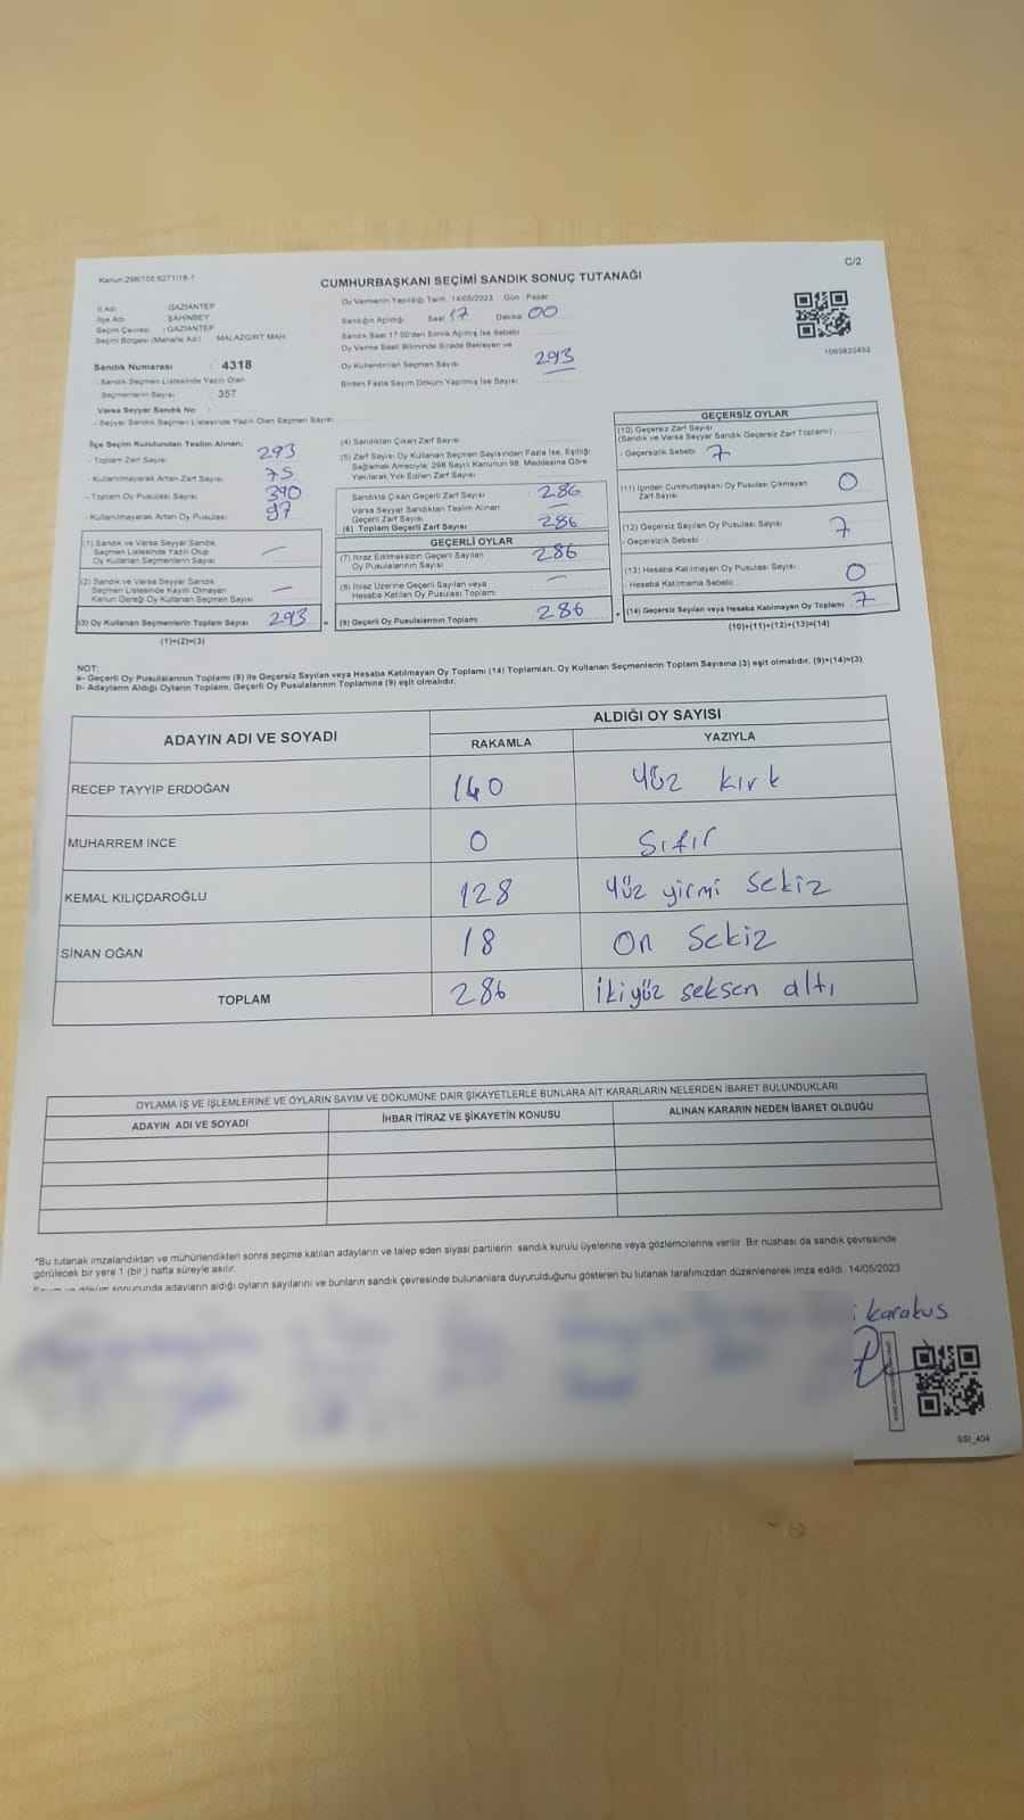 C/2
CUMHURBAŞKANI SEÇİMİ SANDIK SONUÇ TUTANAĞI
İl Adı : GAZİANTEP
İlçe Adı : ŞAHİNBEY
Seçim Çevresi : GAZİANTEP
Seçim Bölgesi (Mahalle Adı) MALAZGİRT MAH.
Oy Vermenin Yapıldığı Tarih: 14/05/2023 Gün : Pazar
Sandığın Açıldığı Saat 17 Dakika 00
Sandık Saat 17.00'den Sonra Açılmış İse Sebebi
Oy Verme Saati Bitiminde Sırada Bekleyen ve
Oy Kullandırılan Seçmen Sayısı 293
Birden Fazla Sayım Döküm Yapılmış İse Sayısı
Sandık Numarası 4318
- Sandık Seçmen Listesinde Yazılı Olan
Seçmenlerin Sayısı 357
Varsa Seyyar Sandık No
- Seyyar Sandık Seçmen Listesinde Yazılı Olan Seçmen Sayısı
İlçe Seçim Kurulundan Teslim Alınan:
- Toplam Zarf Sayısı 293
- Kullanılmayarak Artan Zarf Sayısı 75
- Toplam Oy Pusulası Sayısı 390
- Kullanılmayarak Artan Oy Pusulası 97
(1) Sandık ve Varsa Seyyar Sandık
Seçmen Listesinde Yazılı Olup
Oy Kullanan Seçmenlerin Sayısı —
(2) Sandık ve Varsa Seyyar Sandık
Seçmen Listesinde Kayıtlı Olmayan
Kanun Gereği Oy Kullanan Seçmen Sayısı —
(3) Oy Kullanan Seçmenlerin Toplam Sayısı 293
(1)+(2)=(3)
(4) Sandıktan Çıkan Zarf Sayısı
(5) Zarf Sayısı Oy Kullanan Seçmen Sayısından Fazla İse, Eşitliği
Sağlamak Amacıyla; 298 Sayılı Kanunun 98. Maddesine Göre
Yakılarak Yok Edilen Zarf Sayısı
Sandıkta Çıkan Geçerli Zarf Sayısı 286
Varsa Seyyar Sandıktan Teslim Alınan
Geçerli Zarf Sayısı —
(6) Toplam Geçerli Zarf Sayısı 286
GEÇERLİ OYLAR
(7) İtiraz Edilmeksizin Geçerli Sayılan
Oy Pusulalarının Sayısı 286
(8) İtiraz Üzerine Geçerli Sayılan veya
Hesaba Katılan Oy Pusulası Toplamı —
(9) Geçerli Oy Pusulalarının Toplamı 286
GEÇERSİZ OYLAR
(10) Geçersiz Zarf Sayısı
(Sandık ve Varsa Seyyar Sandık Geçersiz Zarf Toplamı)
- Geçersizlik Sebebi 7
(11) İçinden Cumhurbaşkanı Oy Pusulası Çıkmayan
Zarf Sayısı 0
(12) Geçersiz Sayılan Oy Pusulası Sayısı 7
- Geçersizlik Sebebi
(13) Hesaba Katılmayan Oy Pusulası Sayısı 0
- Hesaba Katılmama Sebebi
(14) Geçersiz Sayılan veya Hesaba Katılmayan Oy Toplamı 7
(10)+(11)+(12)+(13)=(14)
NOT:
a- Geçerli Oy Pusulalarının Toplamı (9) ile Geçersiz Sayılan veya Hesaba Katılmayan Oy Toplamı (14) Toplamları, Oy Kullanan Seçmenlerin Toplam Sayısına (3) eşit olmalıdır. (9)+(14)=(3)
b- Adayların Aldığı Oyların Toplamı, Geçerli Oy Pusulalarının Toplamına (9) eşit olmalıdır.
ADAYIN ADI VE SOYADI
ALDIĞI OY SAYISI
RAKAMLA YAZIYLA
RECEP TAYYİP ERDOĞAN 140 yüz kırk
MUHARREM İNCE 0 Sıfır
KEMAL KILIÇDAROĞLU 128 yüz yirmi sekiz
SİNAN OĞAN 18 On Sekiz
TOPLAM 286 İkiyüz seksen altı
OYLAMA İŞ VE İŞLEMLERİNE VE OYLARIN SAYIM VE DÖKÜMÜNE DAİR ŞİKAYETLERLE BUNLARA AİT KARARLARIN NELERDEN İBARET BULUNDUKLARI
ADAYIN ADI VE SOYADI İHBAR İTİRAZ VE ŞİKAYETİN KONUSU ALINAN KARARIN NEDEN İBARET OLDUĞU
*Bu tutanak imzalandıktan ve mühürlendikten sonra seçime katılan adayların ve talep eden siyasi partilerin sandık kurulu üyelerine veya gözlemcilerine verilir. Bir nüshası da sandık çevresinde
görülecek bir yere 1 (bir) hafta süreyle asılır.
sonucunda adayların aldığı oyların sayılarını ve bunların sandık çevresinde bulunanlara duyurulduğunu gösteren bu tutanak tarafımızdan düzenlenerek imza edildi. 14/05/2023
karakus